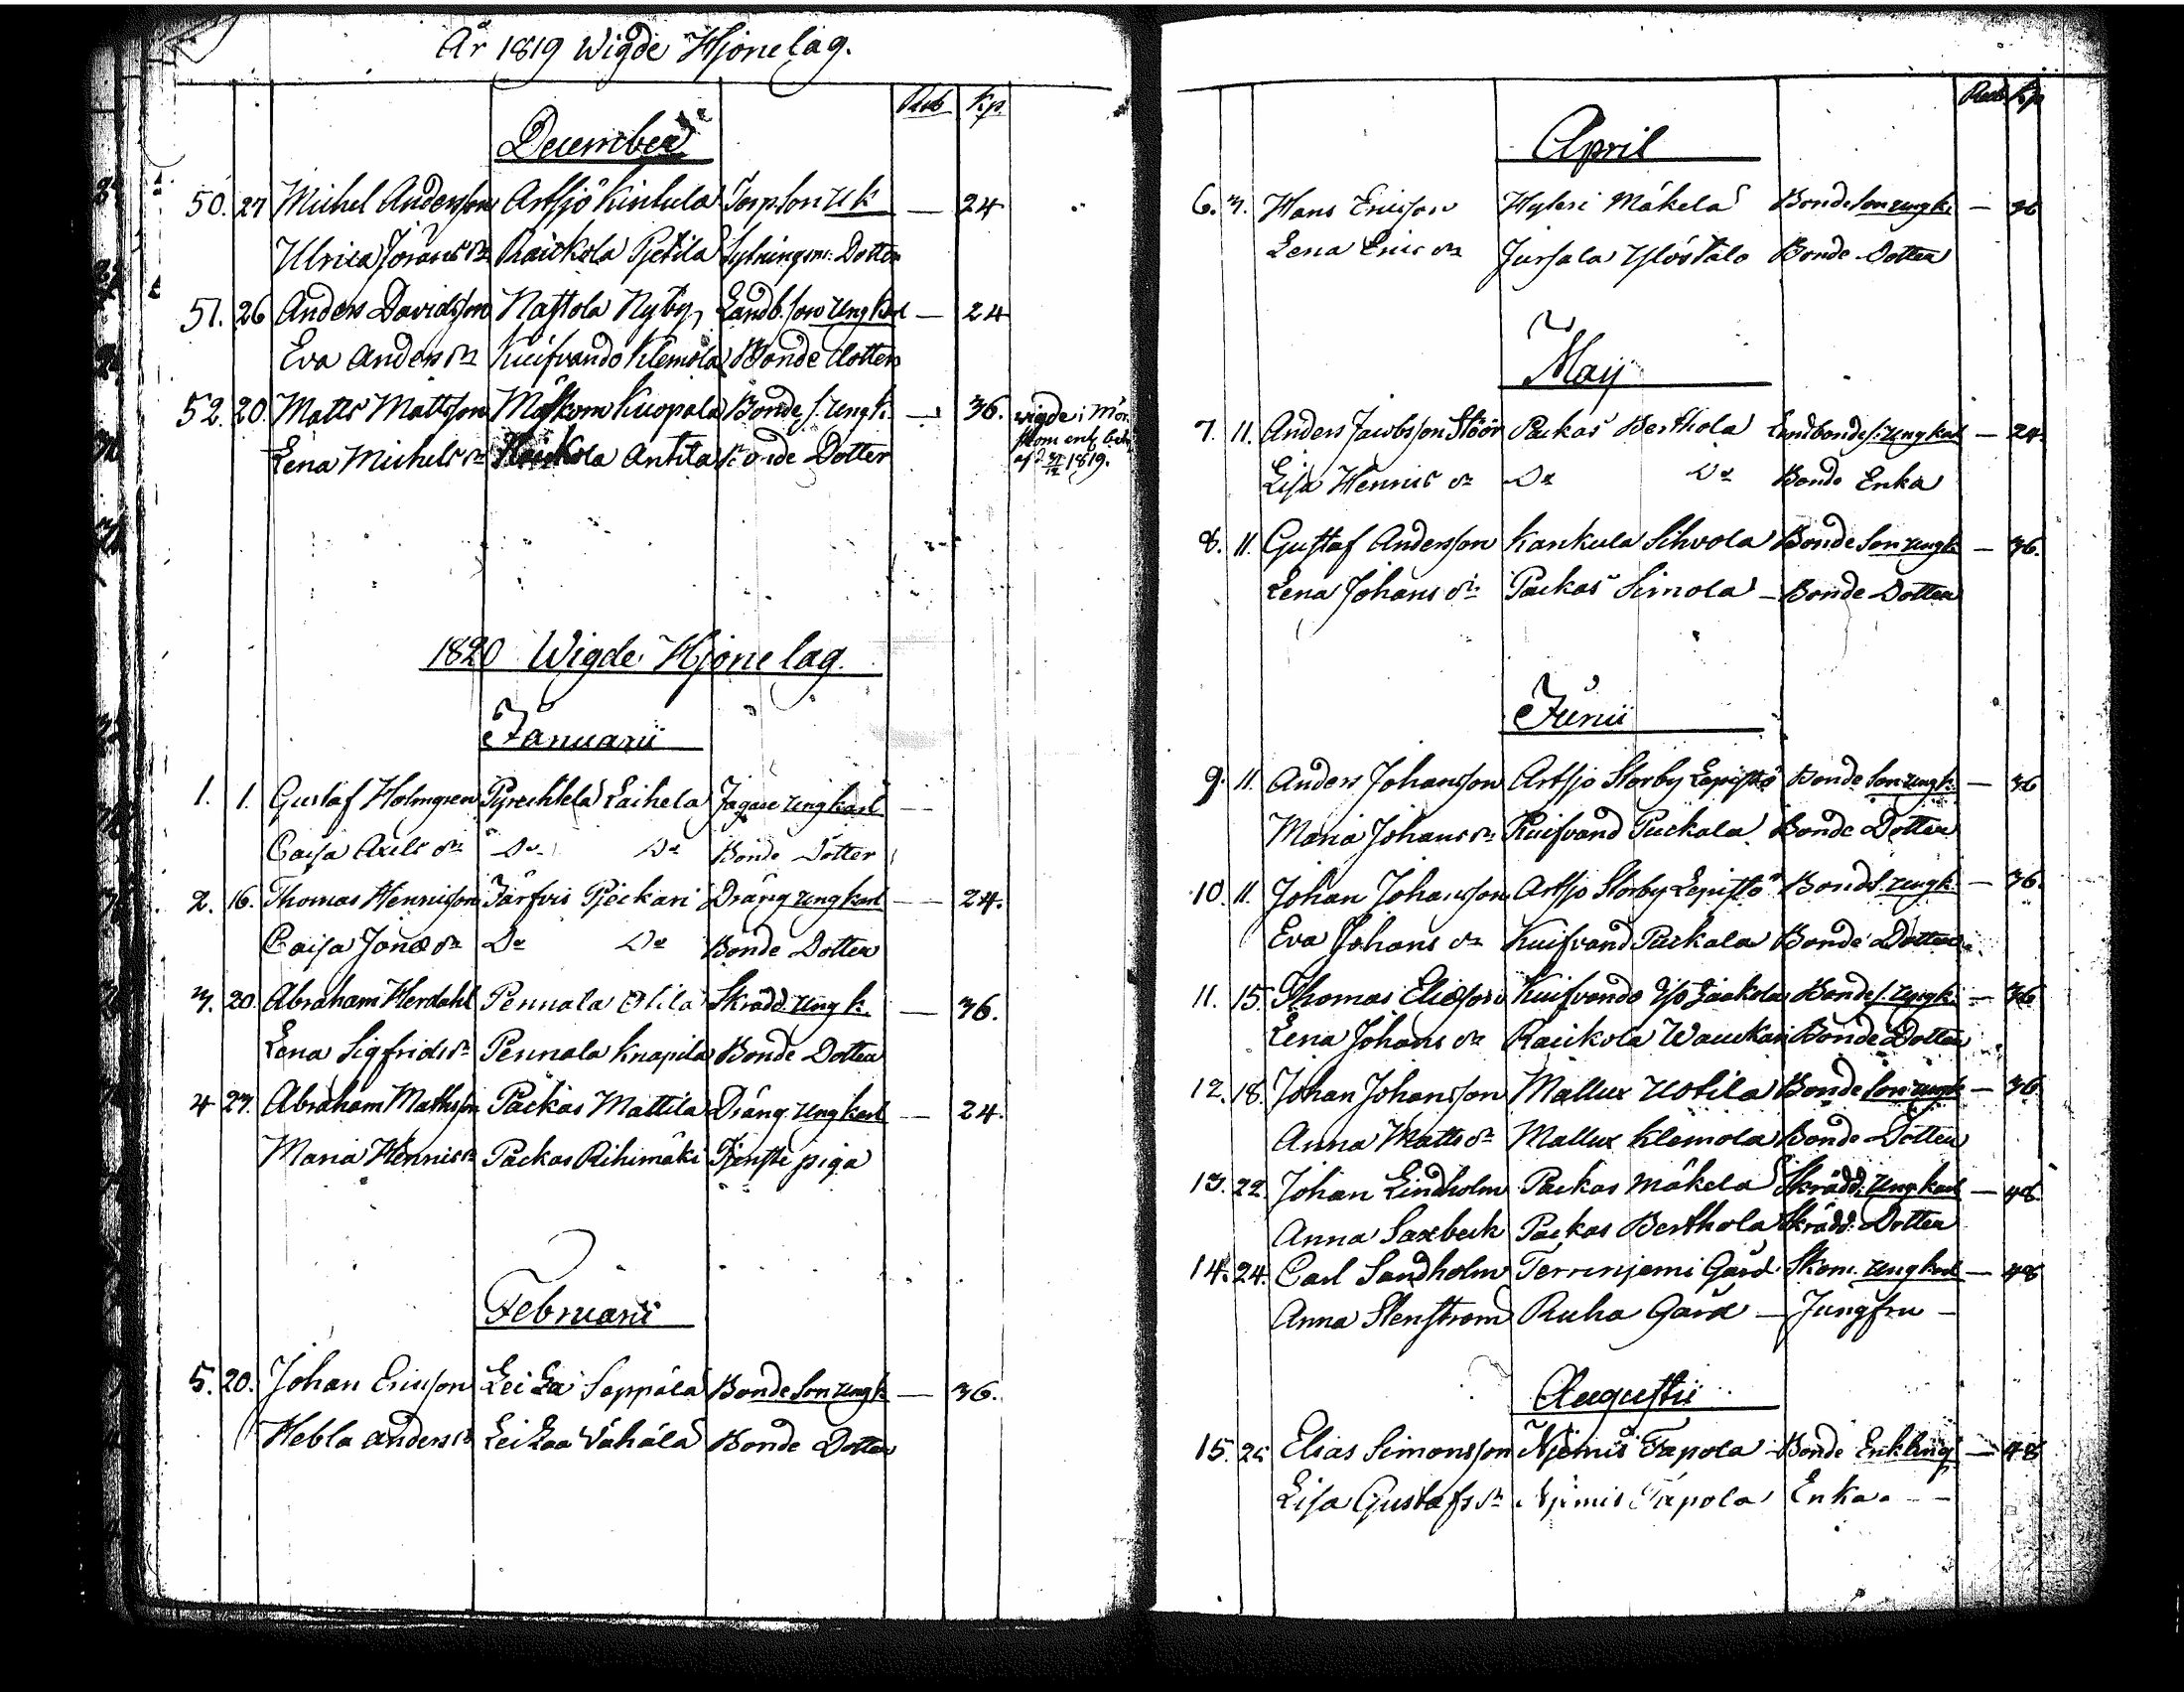 År 1819 Wigde Hjonelag.
Rub Kp.
December
50. 27 Michel Andersson Artsjö Kinkula Torp.son uk — 24
Ulrica Jörans dr Raickola Pjetilä Sytningsm: Dotter
51. 26 Anders Davidsson Nastola Nyby Landb. son ungkarl — 24
Eva Anders dr Kuifvando Klemola Bonde dotter
52. 20. Matts Mattsson Mörskom Kuopala Bonde s. ungk. — 36. wigde i Mör-
skom enl. bet.
af d 31/12 1819.
Lena Michels dr Raickola Anttila Bonde Dotter
1820 Wigde Hjonelag.
Januarii
1. 1. Gustaf Holmgren Pyrechtelä Laihela Jägare ungkarl —
Caisa Axels dr Do Do Bonde Dotter
2. 16. Thomas Hennisson Järfvis Pjeckari Dräng ungkarl — 24.
Caisa Jonæ dr Do Do Bonde Dotter
3. 20. Abraham Herdahl Pennala Ollila Skrädd. ungk. — 36.
Lena Sigfrids dr Pennala Knapila Bonde Dotter
4 23. Abraham Mathsson Packas Mattila Dräng ungkarl — 24.
Maria Hennis dr Packas Rihimäki Tjenste piga
Februarii
5. 20. Johan Ericsson Seppälä Bonde Son ungk — 36.
Hebla Anders dr Vähälä Bonde Dotter
Rub Kp
April
6. 3. Hans Ericsson Mäkelä Bonde Son ungk. — 36
Lena Erics dr Ylöstalo Bonde Dotter
Maij
7. 11. Anders Jacobsson Stöör Packas Berthola Landbonde s. ungkarl — 24
Lisa Hennis dr Do Do Bonde Enka
8. 11. Gustaf Andersson Kankula Sihvola Bonde Son ungk. — 36.
Lena Johans dr Packas Simola — Bonde Dotter
Junii
9. 11. Anders Johansson Artsjö Storby Lepistö Bonde Son ungk. — 36
Maria Johans dr Kuifvand Puckala Bonde Dotter
10. 11. Johan Johansson Artsjö Storby Lepistö Bond s. ungk. — 36.
Eva Johans dr Kuifvand Puckala Bonde Dotter
11. 15. Thomas Eliæsson Kuifvando Bonde s. ungk. — 36
Lena Johans dr Raickola Wauckari Bonde Dotter
12. 18. Johan Johansson Mallux Uotila Bonde Son ungk — 36
Anna Matts dr Mallux Klemola Bonde Dotter
13. 22. Johan Lindholm Packas Mäkelä Skrädd. ungkarl — 48.
Anna Saxbeck Packas Berthola Skrädd. Dotter
14. 24. Carl Sandholm Terrinjemi Gård Skom. ungkarl — 48
Anna Stenstrom Ruha Gård — Jungfru —
Augusti
15. 25 Elias Simonsson Njemis Tapola Bonde Enkling — 48
Lisa Gustafs dr Njemis Tapola Enka. — —